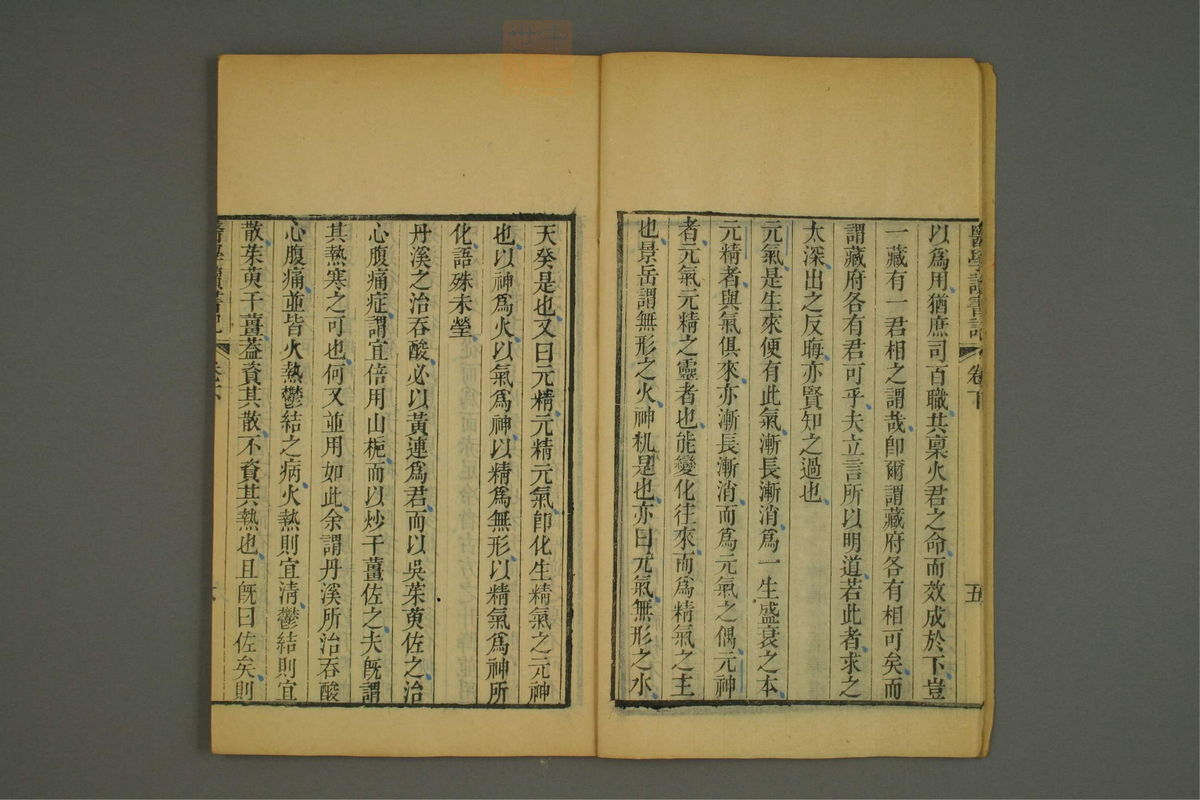 醫學讀書記 卷下 五
以爲用猶庶司百職其稟火君之命而效成於下豈
一藏有一君相之謂哉卽爾謂藏府各有相可矣而
謂藏府各有君可乎夫立言所以明道若此者求之
太深出之反晦亦賢知之過也
元氣是生來便有此氣漸長漸消爲一生盛衰之本
元精者與氣俱來亦漸長漸消而爲元氣之偶元神
者元氣元精之靈者也能變化往來而爲精氣之主
也景岳謂無形之火神机是也亦曰元氣無形之水
天癸是也又曰元精元精元氣卽化生精氣之元神
也以神爲火以氣爲神以精爲無形以精氣爲神所
化語殊未瑩
丹溪之治吞酸必以黃連爲君而以吳茱萸佐之治
心腹痛症謂宜倍用山梔而以炒干薑佐之夫旣謂
其熱寒之可也何又並用如此余謂丹溪所治吞酸
心腹痛並皆火熱鬱結之病火熱則宜清鬱結則宜
散茱萸干薑葢資其散不資其熱也且旣曰佐矣則
醫學讀書記